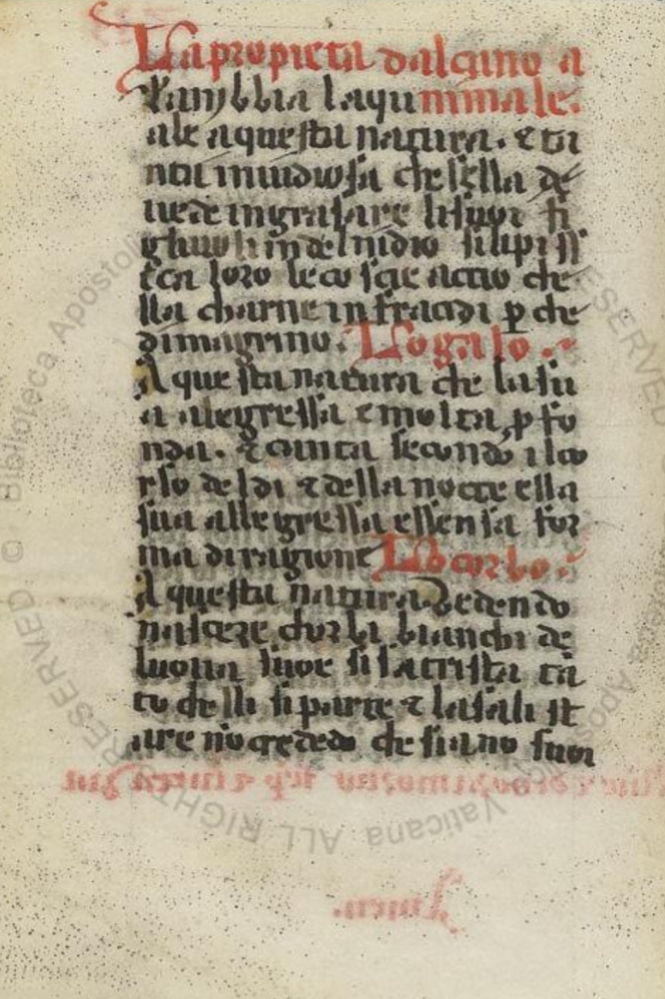 La propieta dalcuno a
Lanjbbia laqu nimale.
ale a questa natura. ⁊ ta
nta inuidiosa che sella de
uede ingrasare li suoi fi
gliuoli in del nidio si li piss
ica loro le coscie accio che
lla charne infracidi p che
dimagrino. Lo galo.
A questa natura che la su
a alegressa e molta pfo
nda. ⁊ canta secondo ilco
rso del di ⁊ della nocte ella
sua allegressa essensa for
ma di ragione Lo corbo.
A questa natura Vedendo
nascere chorbi bianchi de
luoua suoe si satrista ta
to che lli si parte ⁊ lasali st
are no credēdo che siano suoi